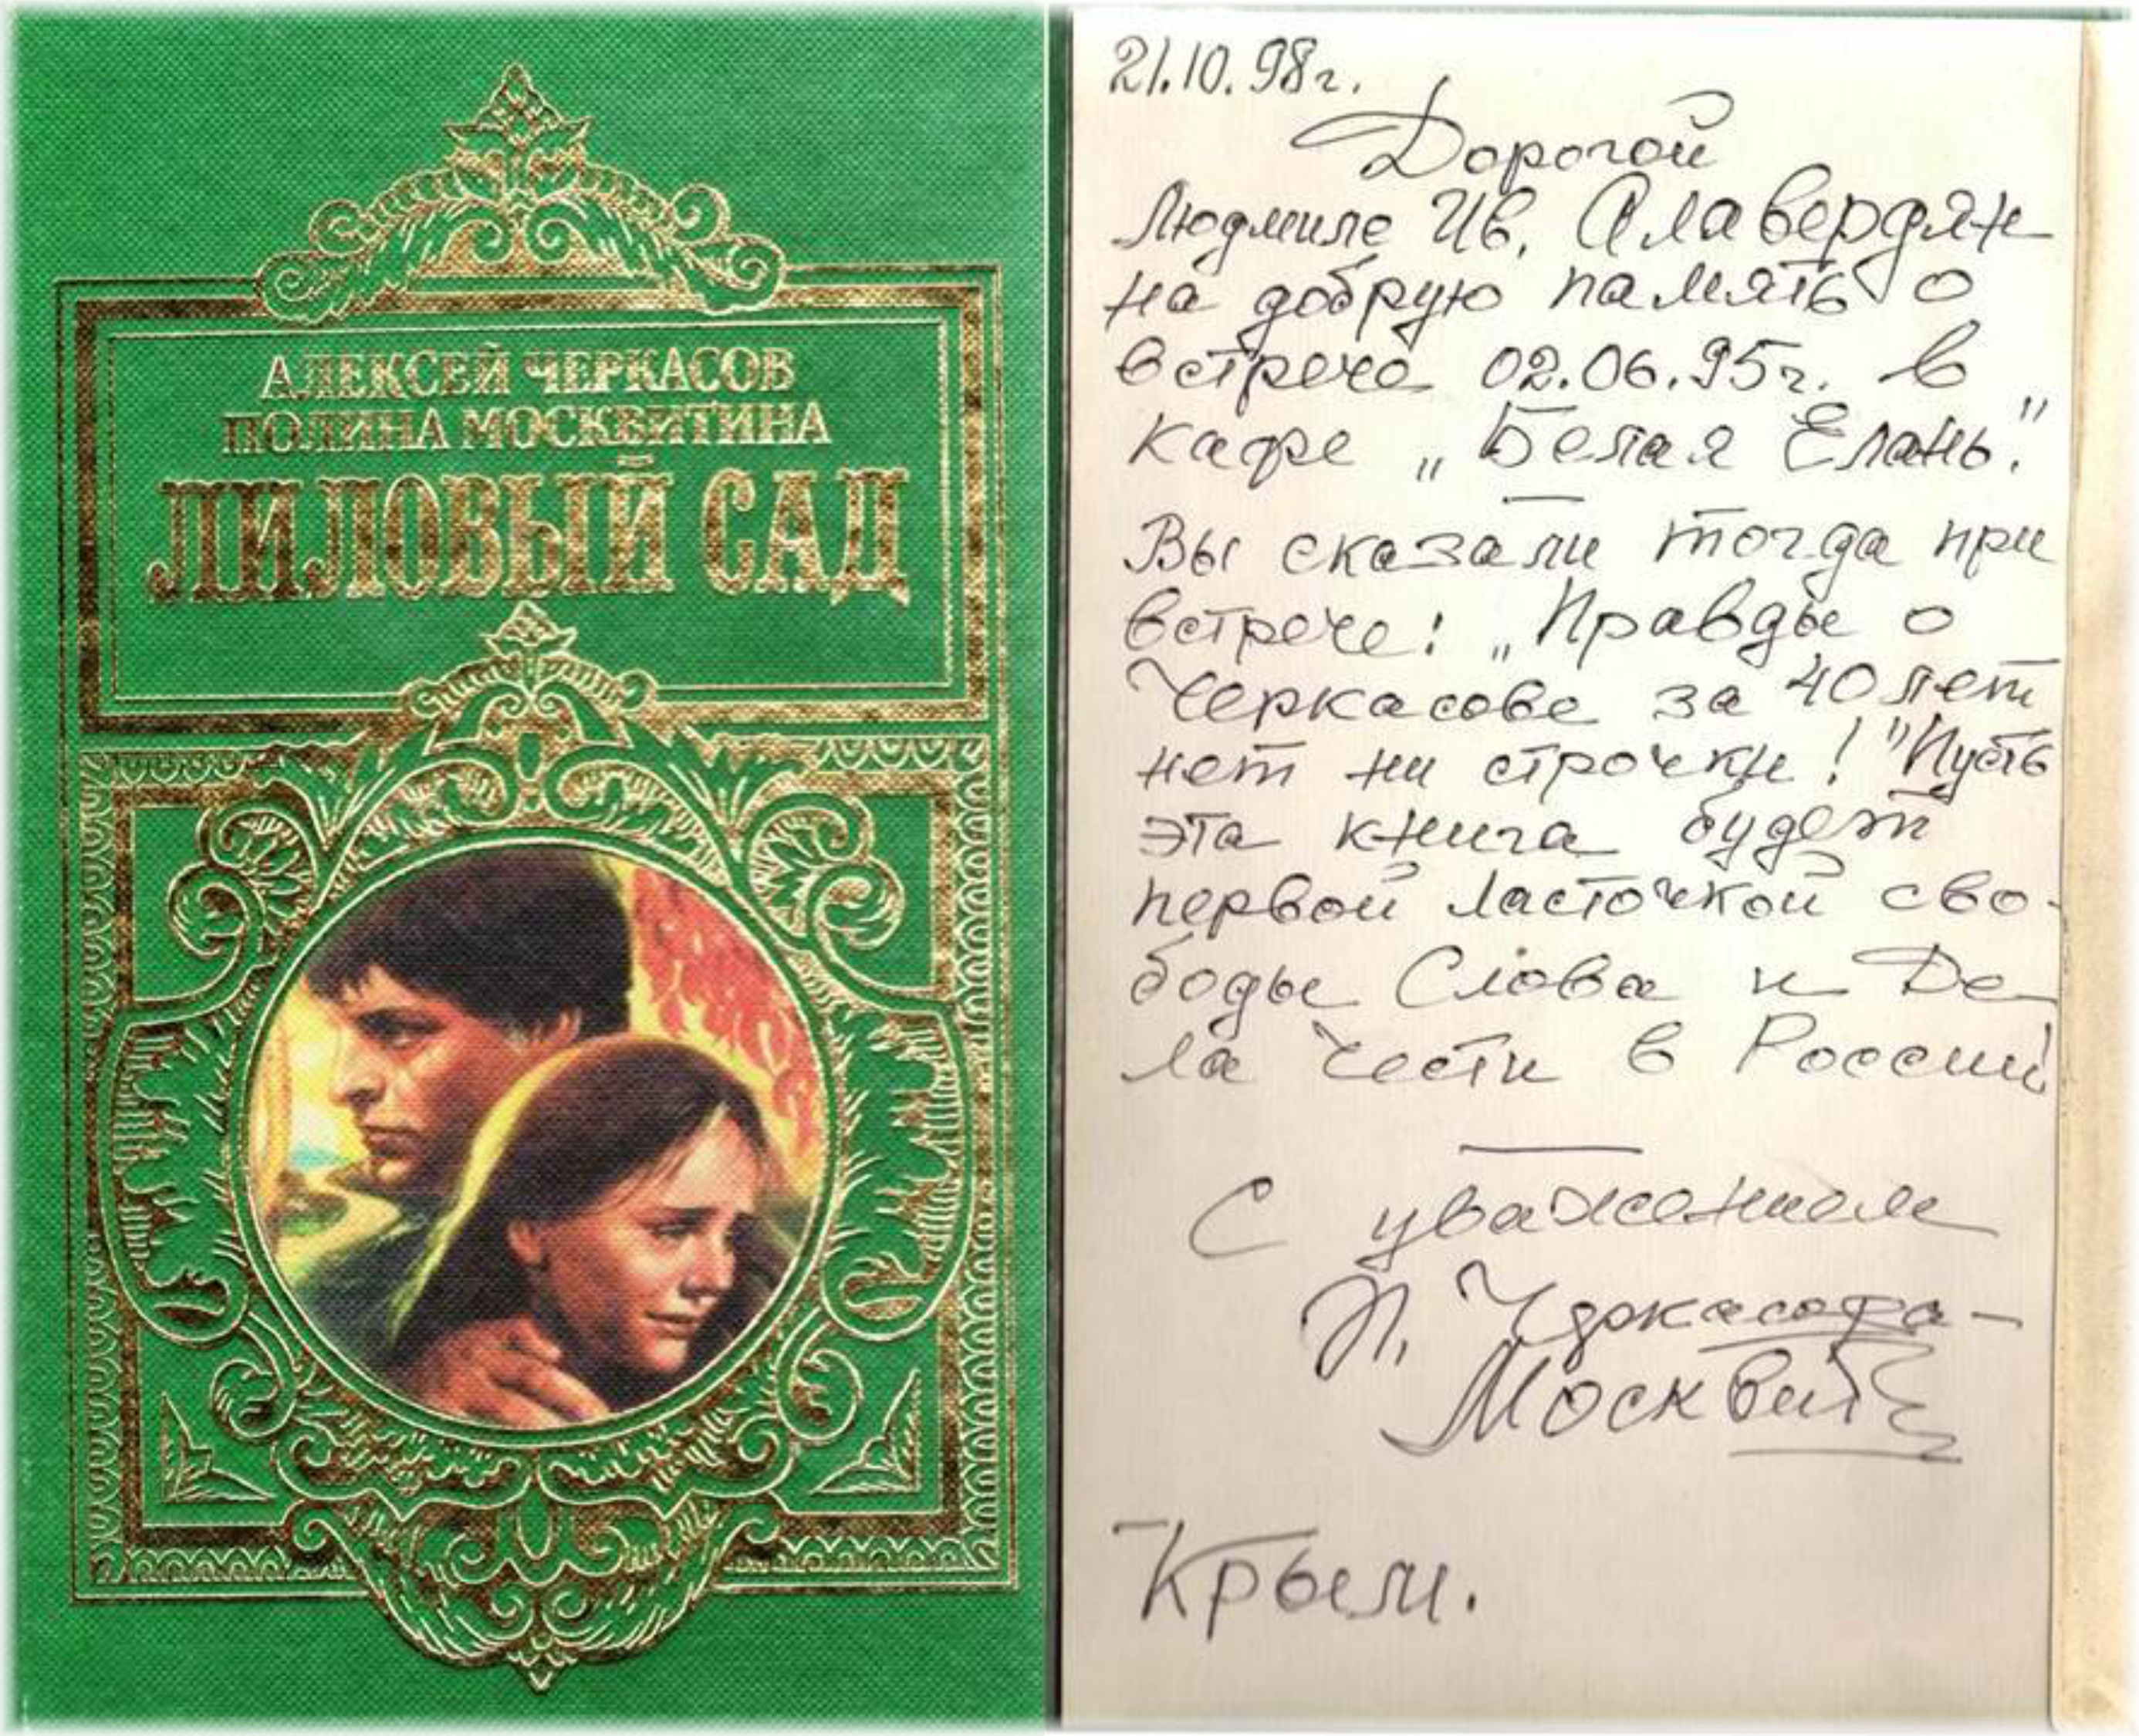 АЛЕКСЕЙ ЧЕРКАСОВ
ПОЛИНА МОСКВИТИНА
ЛИЛОВЫЙ САД
21.10.98г.
Дорогой
Людмиле Ив. Алавердян
на добрую память о
встрече 02.06.95г. в
кафе „Белая Елань."
Вы сказали тогда при
встрече: „Правды о
Черкасове за 40 лет
нет ни строчки!" Пусть
эта книга будет
первой ласточкой сво-
боды Слова и Де-
ла Чести в России!
С уважением
П. Черкасова-
Москвит
Крым.